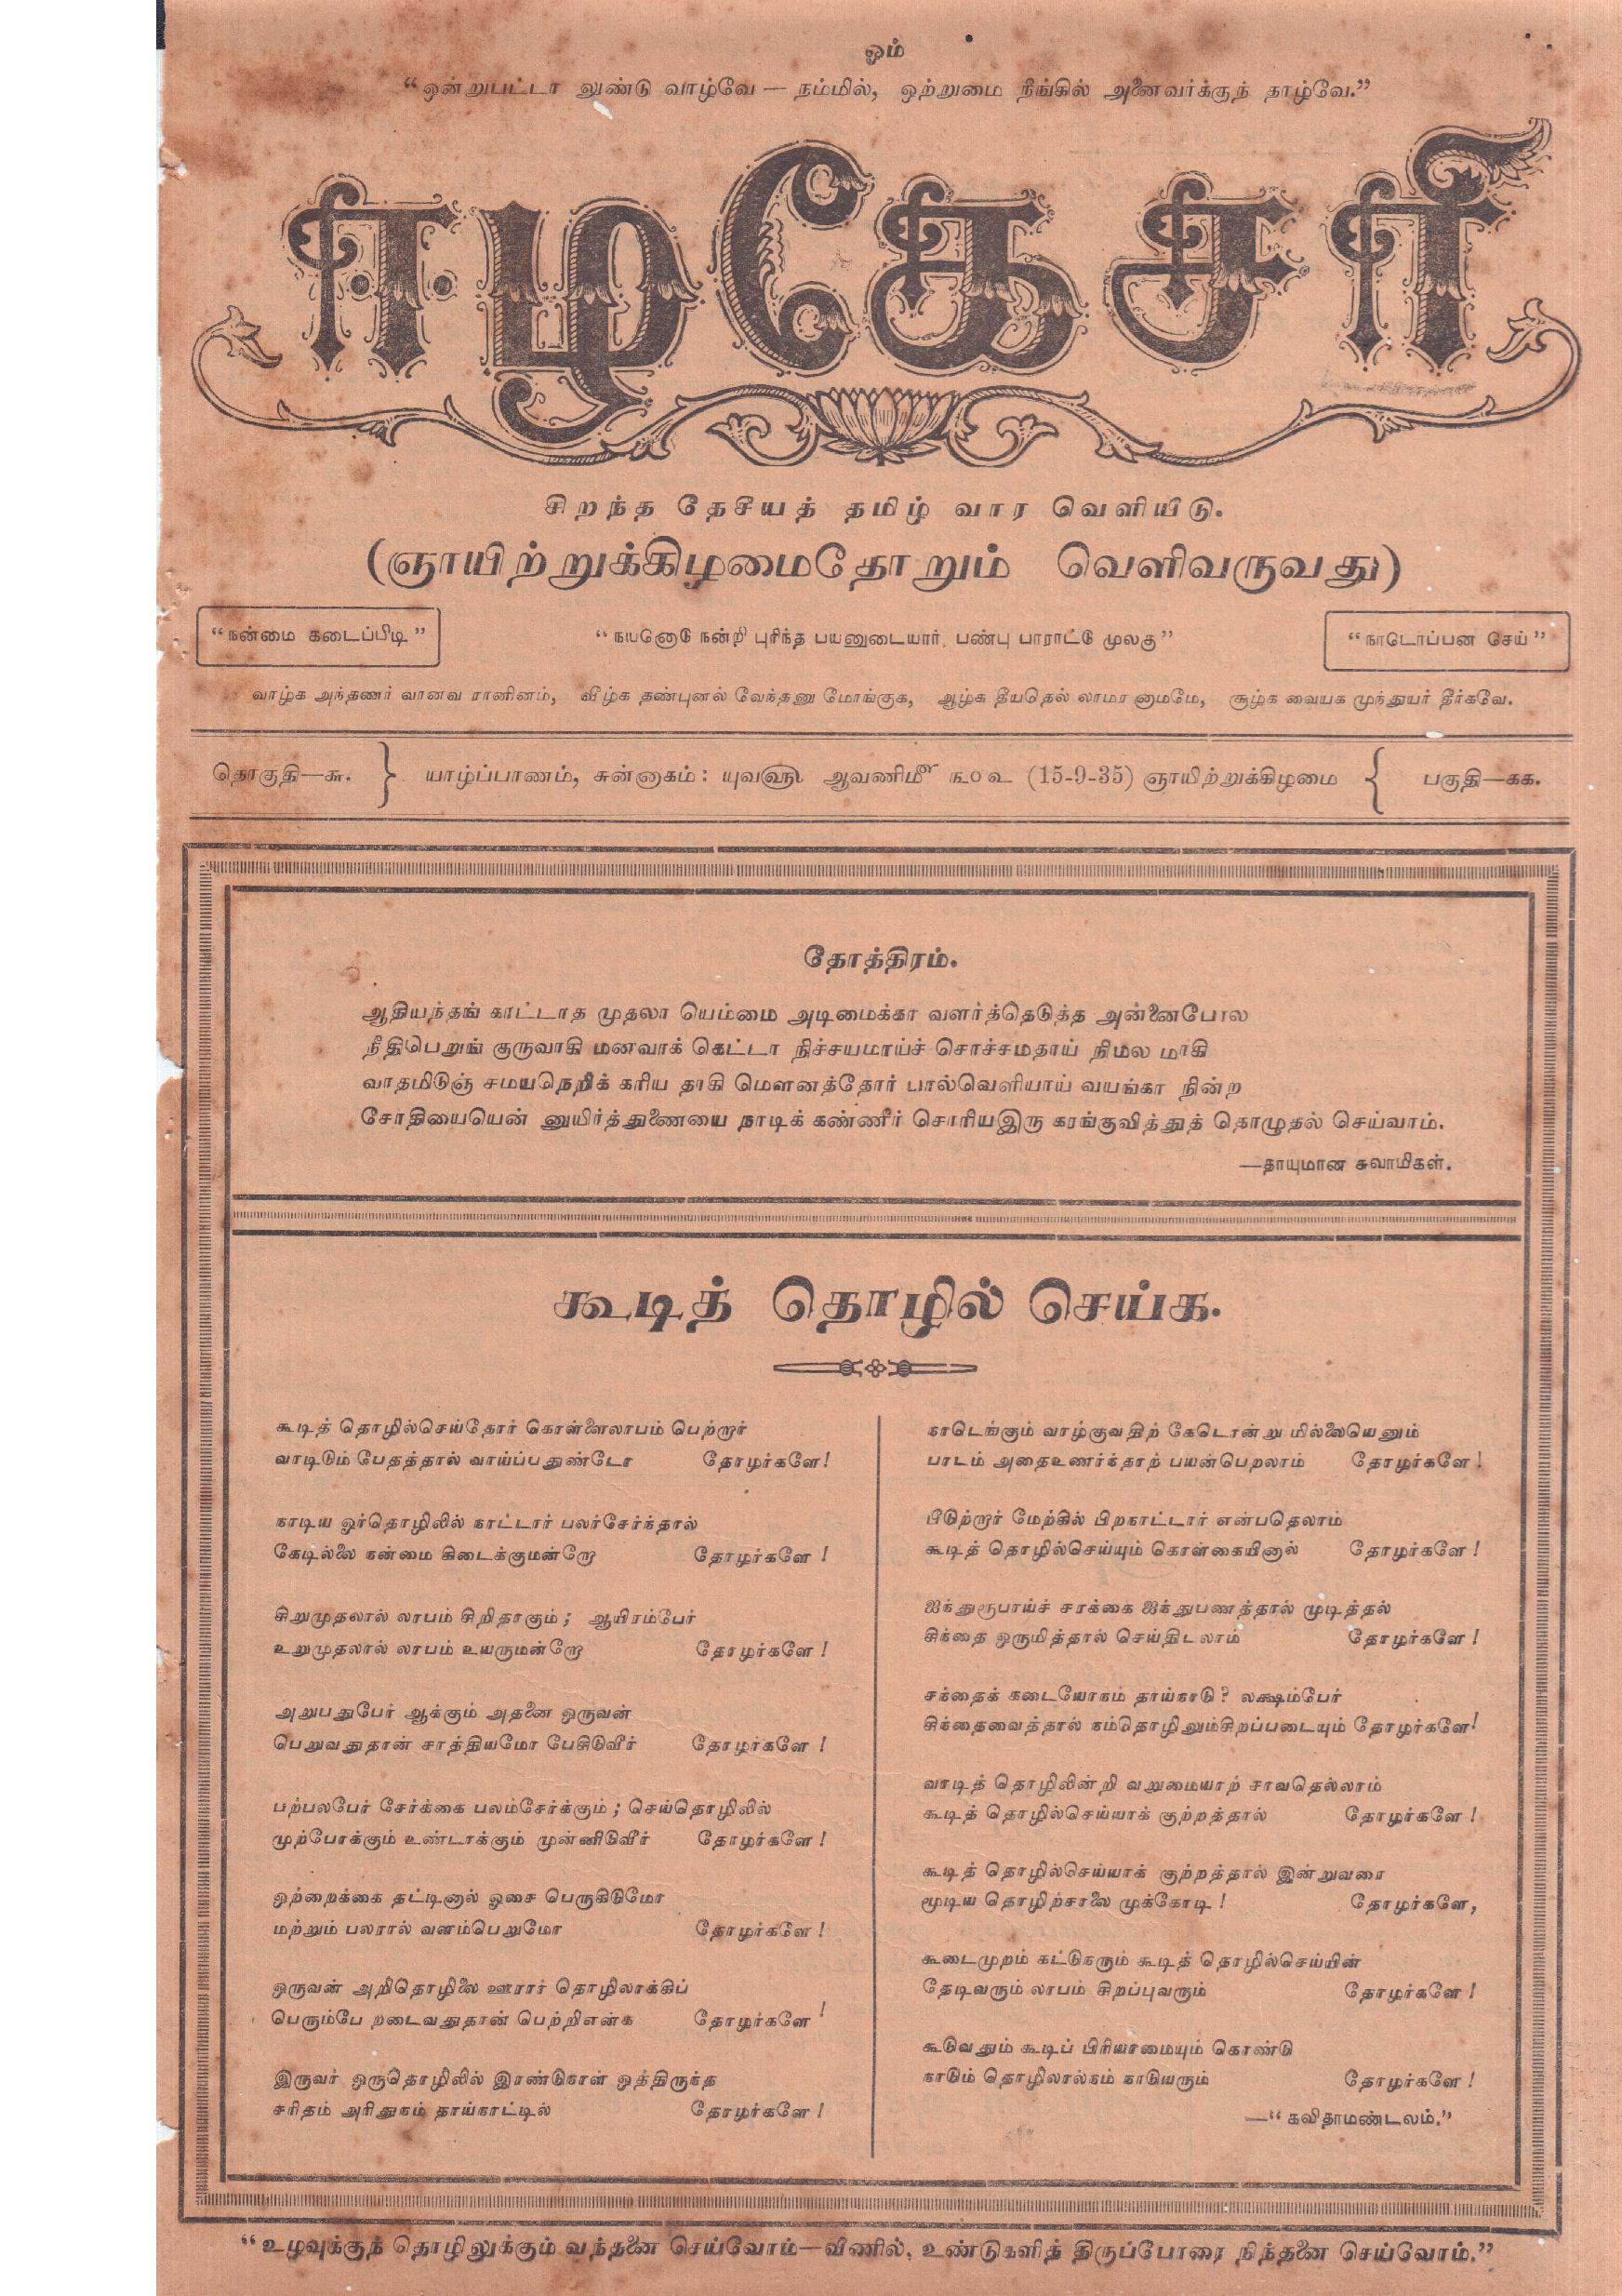 ஓம்
“ஒன்றுபட்டா லுண்டு வாழ்வே — நம்மில், ஒற்றுமை நீங்கில் அனைவர்க்குந் தாழ்வே.”
ஈழகேசரி
சிறந்த தேசீயத் தமிழ் வார வெளியீடு.
(ஞாயிற்றுக்கிழமைதோறும் வெளிவருவது)
“நன்மை கடைப்பிடி”
“நயனொடு நன்றி புரிந்த பயனுடையார், பண்பு பாராட்டு முலகு”
“நாடொப்பன செய்”
வாழ்க அந்தணர் வானவ ரானினம், வீழ்க தண்புனல் வேந்தனு மோங்குக, ஆழ்க தீயதெல் லாமர னாமமே, சூழ்க வையக முந்துயர் தீர்கவே.
தொகுதி—௬. யாழ்ப்பாணம், சுன்னாகம்: யுவ௵ ஆவணி௴ ௩௦௨ (15-9-35) ஞாயிற்றுக்கிழமை பகுதி—கக.
தோத்திரம்.
ஆதியந்தங் காட்டாத முதலா யெம்மை அடிமைக்கா வளர்த்தெடுத்த அன்னைபோல
நீதிபெறுங் குருவாகி மனவாக் கெட்டா நிச்சயமாய்ச் சொச்சமதாய் நிமல மாகி
வாதமிடுஞ் சமயநெறிக் கரிய தாகி மௌனத்தோர் பால்வெளியாய் வயங்கா நின்ற
சோதியையென் னுயிர்த்துணையை நாடிக் கண்ணீர் சொரியஇரு கரங்குவித்துத் தொழுதல் செய்வாம்.
—தாயுமான சுவாமிகள்.
கூடித் தொழில் செய்க.
கூடித் தொழில்செய்தோர் கொள்ளைலாபம் பெற்றார்
வாடிடும் பேதத்தால் வாய்ப்பதுண்டோ தோழர்களே!
நாடிய ஓர்தொழிலில் நாட்டார் பலர்சேர்ந்தால்
கேடில்லை நன்மை கிடைக்குமன்றோ தோழர்களே!
சிறுமுதலால் லாபம் சிறிதாகும்; ஆயிரம்பேர்
உறுமுதலால் லாபம் உயருமன்றோ தோழர்களே!
அறுபதுபேர் ஆக்கும் அதனை ஒருவன்
பெறுவதுதான் சாத்தியமோ பேசிடுவீர் தோழர்களே!
பற்பலபேர் சேர்க்கை பலம்சேர்க்கும்; செய்தொழிலில்
முற்போக்கும் உண்டாக்கும் முன்னிடுவீர் தோழர்களே!
ஒற்றைக்கை தட்டினால் ஓசை பெருகிடுமோ
மற்றும் பலரால் வளம்பெறுமோ தோழர்களே!
ஒருவன் அறிதொழிலை ஊரார் தொழிலாக்கிப்
பெரும்பே றடைவதுதான் பெற்றிஎன்க தோழர்களே!
இருவர் ஒருதொழிலில் இரண்டுநாள் ஒத்திருந்த
சரிதம் அரிதுநம் தாய்நாட்டில் தோழர்களே!
நாடெங்கும் வாழ்குவதிற் கேடொன்று மில்லையெனும்
பாடம் அதைஉணர்ந்தாற் பயன்பெறலாம் தோழர்களே!
பீடுற்றார் மேற்கில் பிறநாட்டார் என்பதெலாம்
கூடித் தொழில்செய்யும் கொள்கையினால் தோழர்களே!
ஐந்துரூபாய்ச் சரக்கை ஐந்துபணத்தால் முடித்தல்
சிந்தை ஒருமித்தால் செய்திடலாம் தோழர்களே!
சந்தைக் கடையோநம் தாய்நாடு? லக்ஷம்பேர்
சிந்தைவைத்தால் நம்தொழிலும்சிறப்படையும் தோழர்களே!
வாடித் தொழிலின்றி வறுமையாற் சாவதெல்லாம்
கூடித் தொழில்செய்யாக் குற்றத்தால் தோழர்களே!
கூடித் தொழில்செய்யாக் குற்றத்தால் இன்றுவரை
மூடிய தொழிற்சாலை முக்கோடி! தோழர்களே,
கூடைமுறம் கட்டுநரும் கூடித் தொழில்செய்யின்
தேடிவரும் லாபம் சிறப்புவரும் தோழர்களே!
கூடுவதும் கூடிப் பிரியாமையும் கொண்டு
நாடும் தொழிலால்நம் நாடுயரும் தோழர்களே!
—“கவிதாமண்டலம்.”
“உழவுக்குந் தொழிலுக்கும் வந்தனை செய்வோம்—வீணில், உண்டுகளித் திருப்போரை நிந்தனை செய்வோம்.”